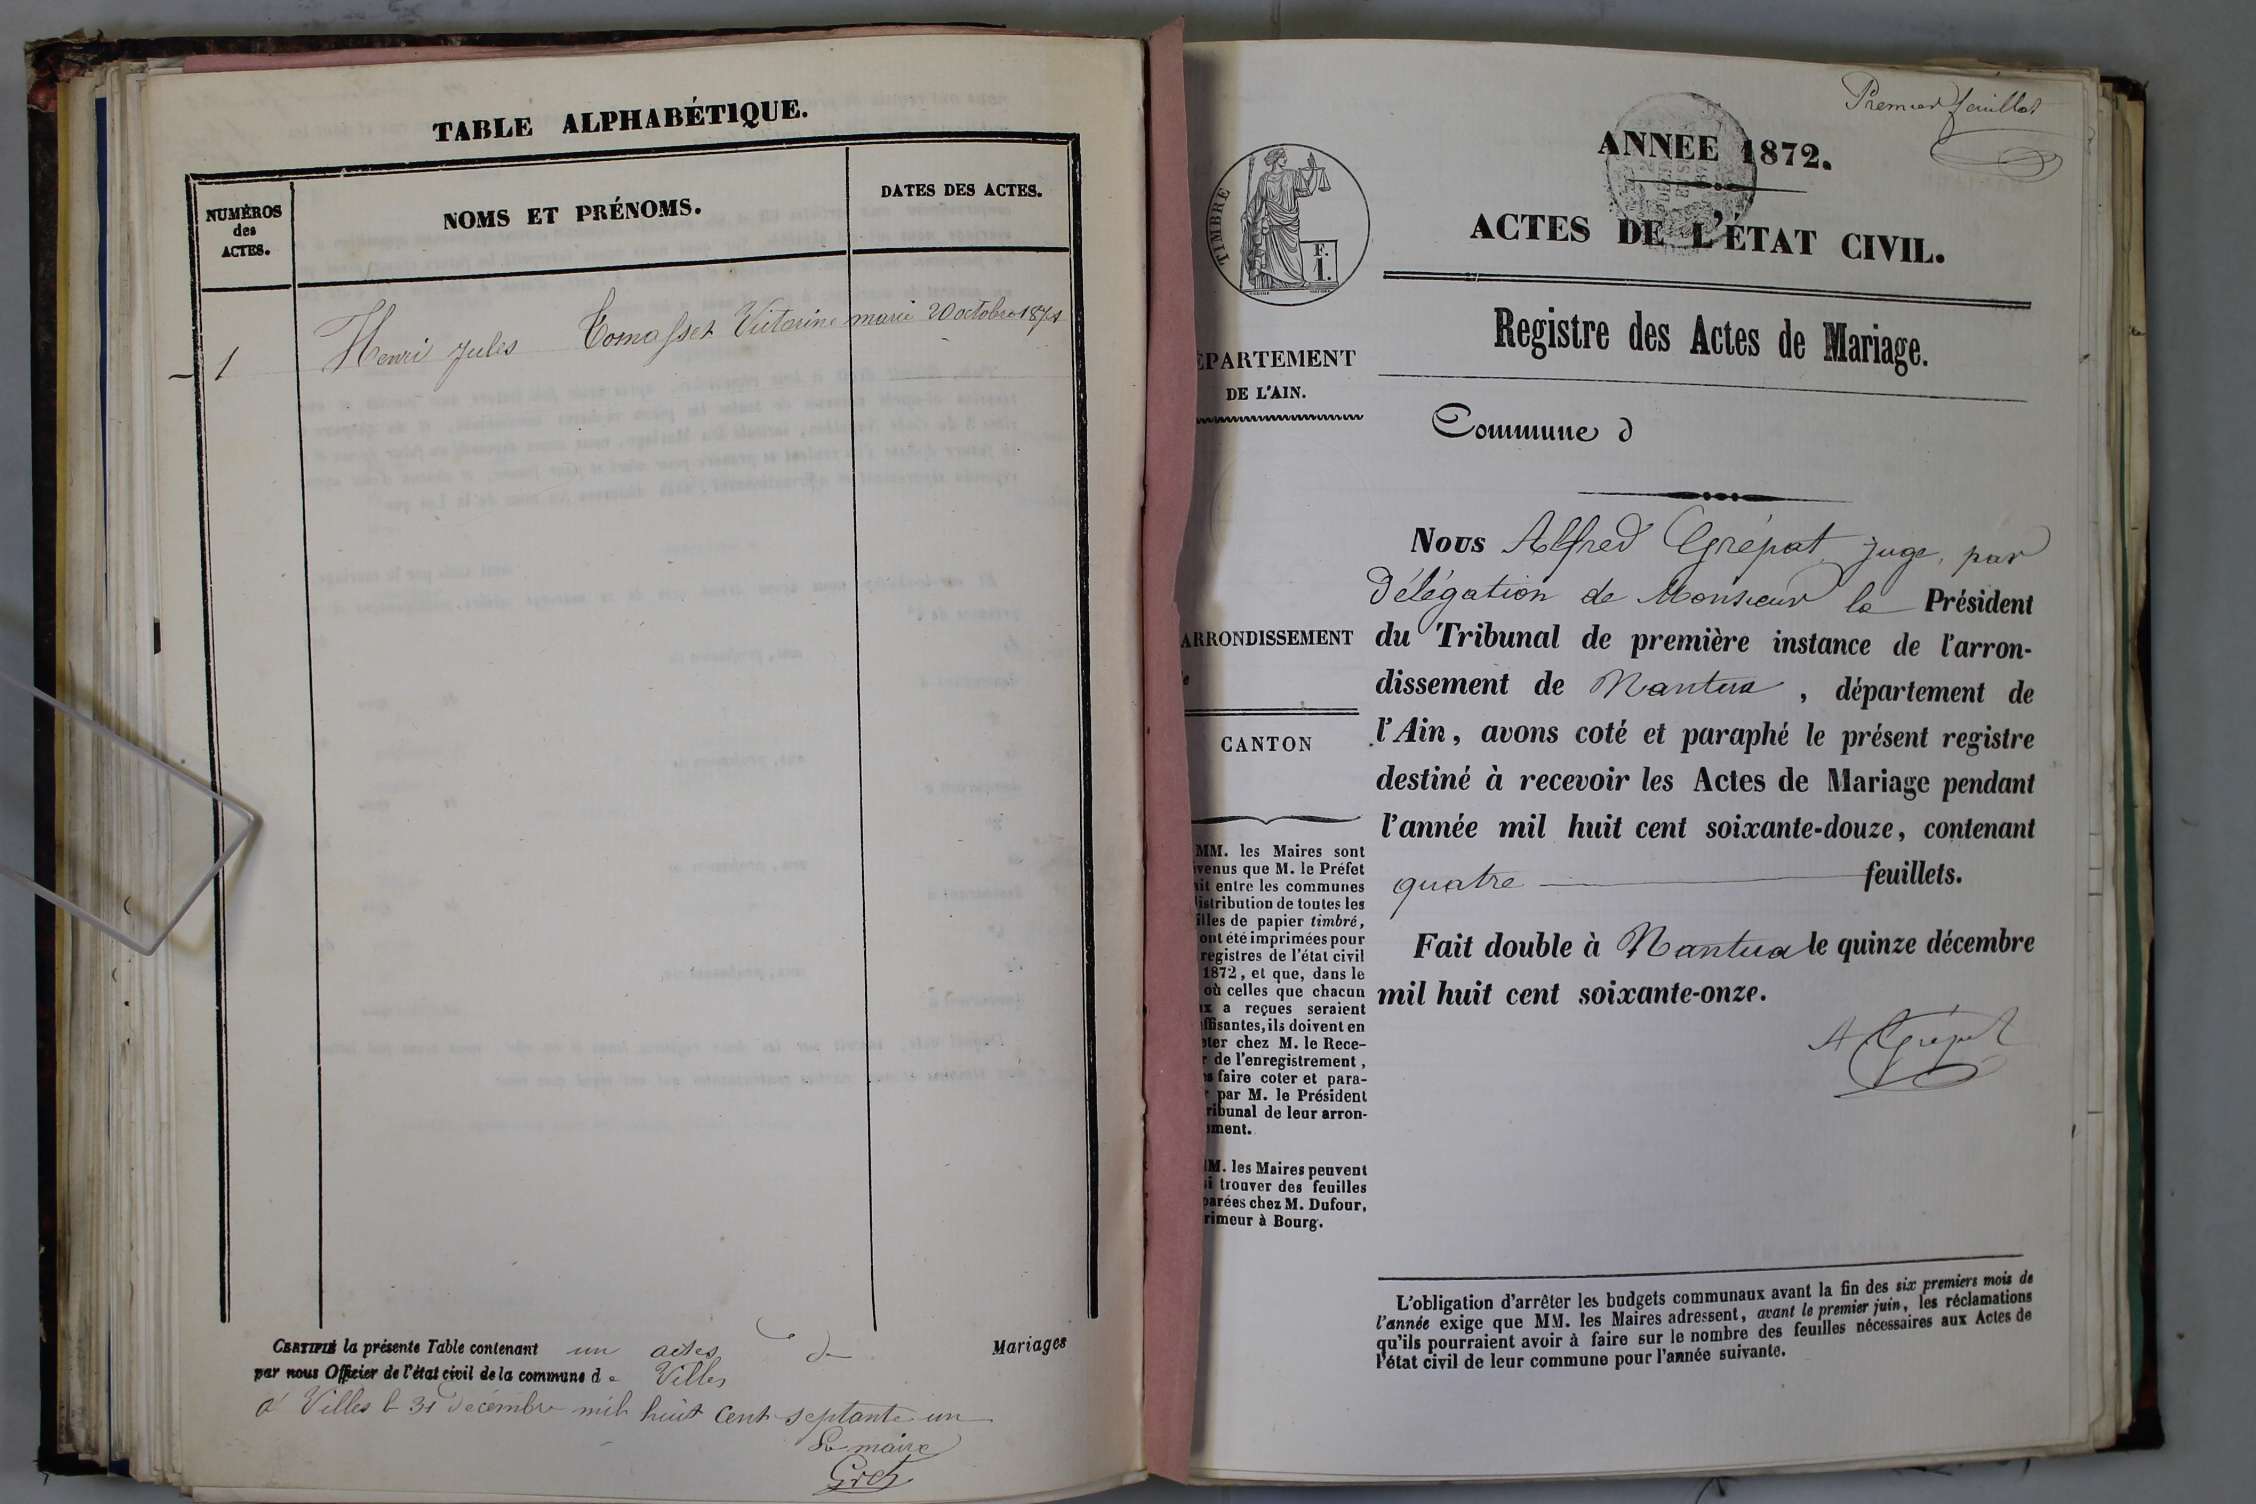 TABLE ALPHABÉTIQUE.
NUMÉROS
des
ACTES.
NOMS ET PRÉNOMS.
DATES DES ACTES.
1 Henri Jules Tomasset Victorine marie 20 octobre 1871
CERTIFIÉ la présente Table contenant un actes de Mariages
par nous Officier de l'état civil de la commune de Villes
à Villes le 31 Décembre mil huit cent septante un
Le maire
Gret
Premier feuillet
ANNEE 1872.
ACTES DE L'ÉTAT CIVIL.
TIMBRE
F.
1.
Registre des Actes de Mariage.
ÉPARTEMENT
DE L'AIN.
Commune d
Nous Alfred Grépat, juge, par
Délégation de Monsieur le Président
ARRONDISSEMENT
du Tribunal de première instance de l'arron-
dissement de Nantua, département de
CANTON
l'Ain, avons coté et paraphé le présent registre
destiné à recevoir les Actes de Mariage pendant
l'année mil huit cent soixante-douze, contenant
quatre feuillets.
Fait double à Nantua le quinze décembre
mil huit cent soixante-onze.
A Grépat
MM. les Maires sont
venus que M. le Préfet
it entre les communes
istribution de toutes les
illes de papier timbré,
ont été imprimées pour
registres de l'état civil
1872, et que, dans le
où celles que chacun
x a reçues seraient
ffisantes, ils doivent en
ter chez M. le Rece-
r de l'enregistrement,
s faire coter et para-
r par M. le Président
ribunal de leur arron-
ment.
M. les Maires peuvent
si trouver des feuilles
parées chez M. Dufour,
rimeur à Bourg.
L'obligation d'arrêter les budgets communaux avant la fin des six premiers mois de
l'année exige que MM. les Maires adressent, avant le premier juin, les réclamations
qu'ils pourraient avoir à faire sur le nombre des feuilles nécessaires aux Actes de
l'état civil de leur commune pour l'année suivante.